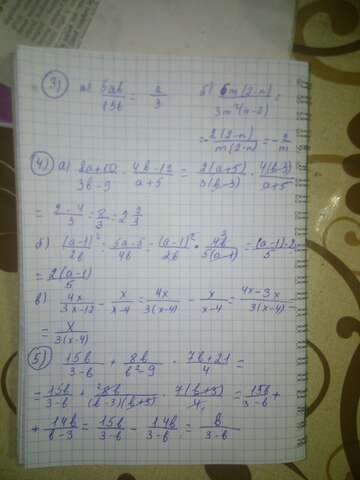 3) а) 5ab/15b = a/3 б) 6m(2-n)/3m²(n-2) =
= - 2(2-n)/m(2-n) = - 2/m
4) а) 2a+10/3b-9 · 4b-12/a+5 = 2(a+5)/3(b-3) · 4(b-3)/a+5 =
= 2·4/3 = 8/3 = 2 2/3
б) (a-1)²/2b : 5a-5/4b = (a-1)²/2b · 4b/5(a-1) = (a-1)·2/5 =
= 2(a-1)/5
в) 4x/3x-12 - x/x-4 = 4x/3(x-4) - x/x-4 = 4x-3x/3(x-4) =
= x/3(x-4)
5) 15b/3-b + 8b/b²-9 · 7b+21/4 =
= 15b/3-b + 8b/(b-3)(b+3) · 7(b+3)/4 = 15b/3-b +
+ 14b/b-3 = 15b/3-b - 14b/3-b = b/3-b